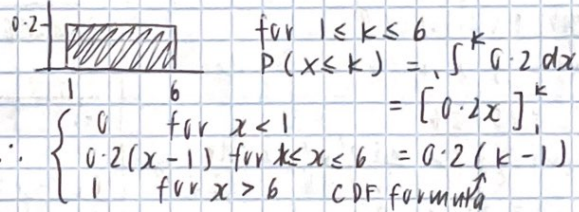 0.2
for 1 ≤ k ≤ 6
P(X ≤ k) = ₁∫ᵏ 0.2 dx
1 6
= [0.2x]₁ᵏ
∴ { 0 for x < 1
0.2(x - 1) for 1 ≤ x ≤ 6 = 0.2(k - 1)
1 for x > 6 CDF formula ↑